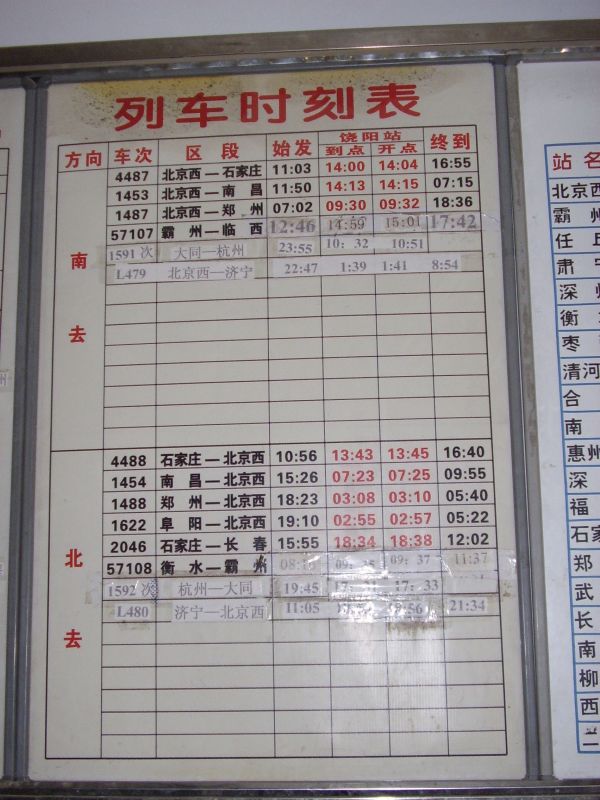 列车时刻表
方向 车次 区段 始发 饶阳站 终到
到点 开点
南去
4487 北京西—石家庄 11:03 14:00 14:04 16:55
1453 北京西—南昌 11:50 14:13 14:15 07:15
1487 北京西—郑州 07:02 09:30 09:32 18:36
57107 霸州—临西 12:46 14:59 15:01 17:42
1591次 大同—杭州 23:55 10:32 10:51
L479 北京西—济宁 22:47 1:39 1:41 8:54
北去
4488 石家庄—北京西 10:56 13:43 13:45 16:40
1454 南昌—北京西 15:26 07:23 07:25 09:55
1488 郑州—北京西 18:23 03:08 03:10 05:40
1622 阜阳—北京西 19:10 02:55 02:57 05:22
2046 石家庄—长春 15:55 18:34 18:38 12:02
57108 衡水—霸州 09:37 11:37
1592次 杭州—大同 19:45 17:33
L480 济宁—北京西 11:05 21:34
站名
北京西
霸州
任丘
肃宁
深州
衡
枣
清河
合
南
惠州
深
福
石家
郑
武
长
南
柳
西